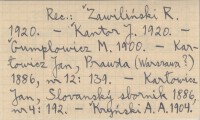 Rec.: Zawiliński R.
1920. – Kantor J. 1920. –
Gumplowicz M. 1900. – Kar-
łowicz Jan, Prawda (Warszawa?)
1886, nr 12: 139. – Karłowicz
Jan, Slovanský sborník 1886,
nr 4: 192. – Kryński A.A. 1904.